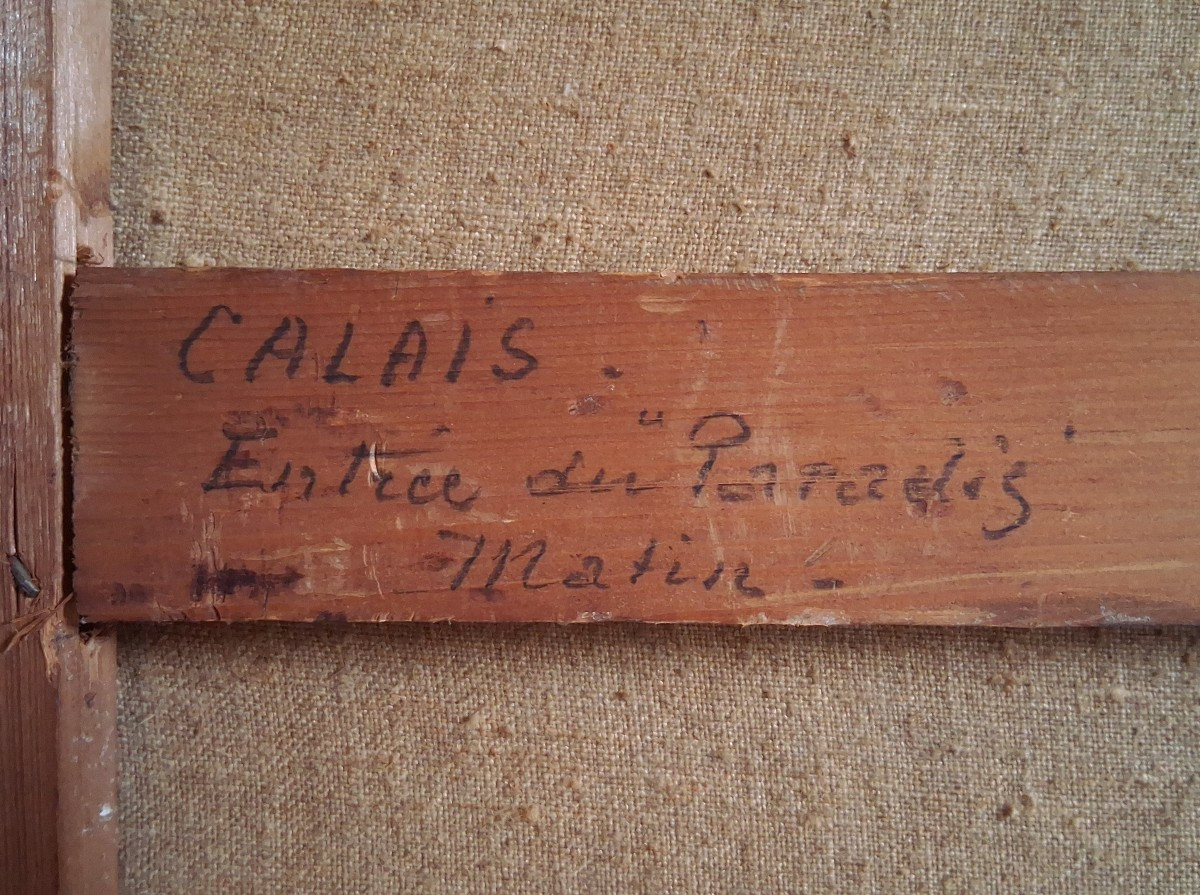 CALAIS.
Entrée du "Paradis"
Matin.